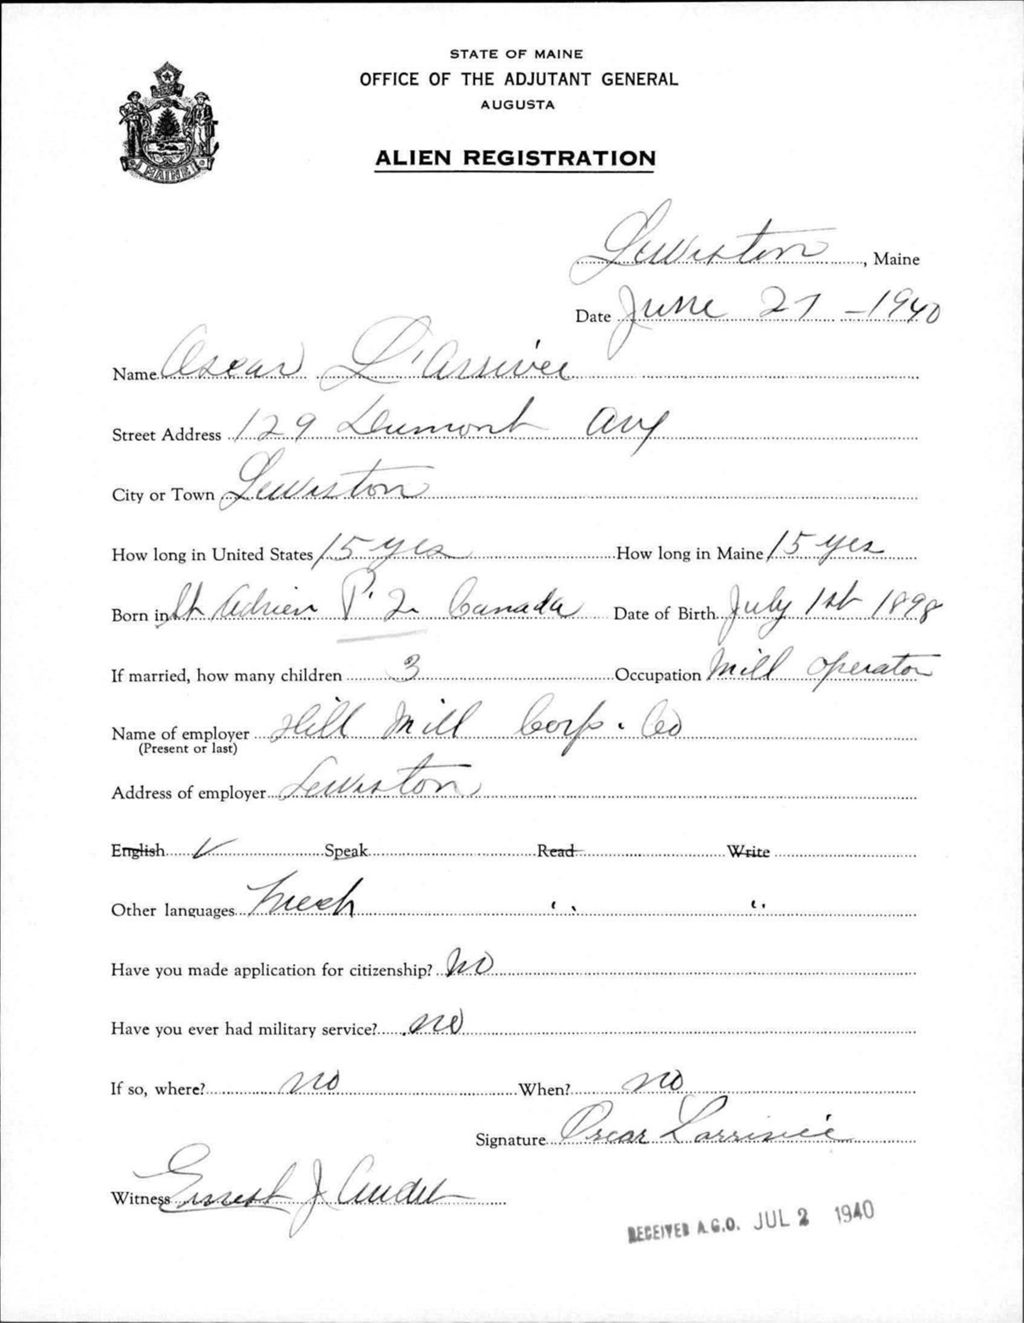 STATE OF MAINE
OFFICE OF THE ADJUTANT GENERAL
AUGUSTA
MAINE
ALIEN REGISTRATION
Lewiston, Maine
Date June 27 - 1940
Name Oscar L'Arrivee
Street Address 129 Dumont Ave
City or Town Lewiston
How long in United States 15 yrs How long in Maine 15 yrs
Born in St Adrien P. Q. Canada Date of Birth July 1st 1898
If married, how many children 3 Occupation Mill operator
Name of employer Hill Mill Corp. Co
(Present or last)
Address of employer Lewiston
English ✓ Speak Read Write
Other languages French " "
Have you made application for citizenship? No
Have you ever had military service? no
If so, where? no When? no
Signature Oscar Larrivée
Witness Ernest J Audet
RECEIVED A.G.O. JUL 2 1940